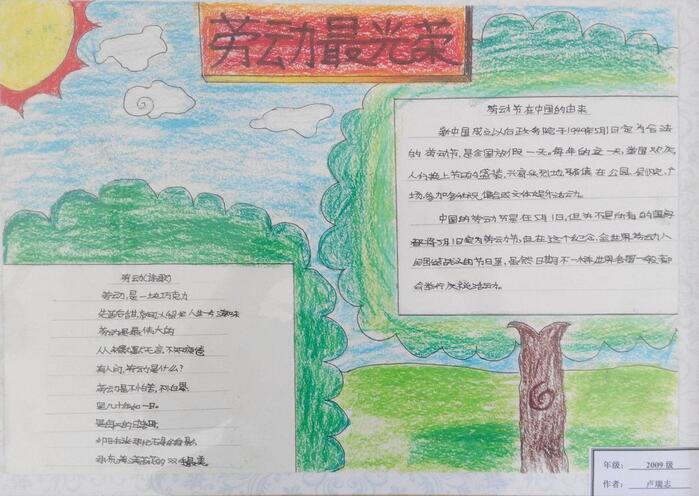 劳动最光荣
劳动节在中国的由来
新中国成立以后政务院于1949年5月1日定为合法
的劳动节,是全国放假一天。每年的这一天,举国欢庆,
人们换上节日的盛装,兴高采烈地聚集在公园、剧院、广
场,参加各种庆祝集会或文体娱乐活动。
中国的劳动节是在5月1日,但并不是所有的国家
都将5月1日定为劳动节,但在这个纪念全世界劳动人
民团结战斗的节日里,虽然日期不一样,世界各国一般都
会举行庆祝活动。
劳动(诗歌)
劳动,是一块巧克力
先苦后甜,
劳动是最伟大的
人人
有人问,劳动是什么?
劳动是不怕苦,不怕累
是几十年如一日。
年级: 2009级
作者: 卢瑞志